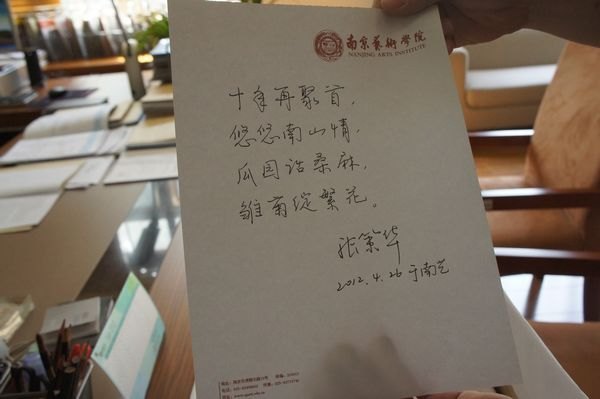 南京藝術學院
NANJING ARTS INSTITUTE
十年再聚首，
悠悠南山情，
瓜园话桑麻，
雏菊绽繁花。
张策华
2012.4.26 于南艺